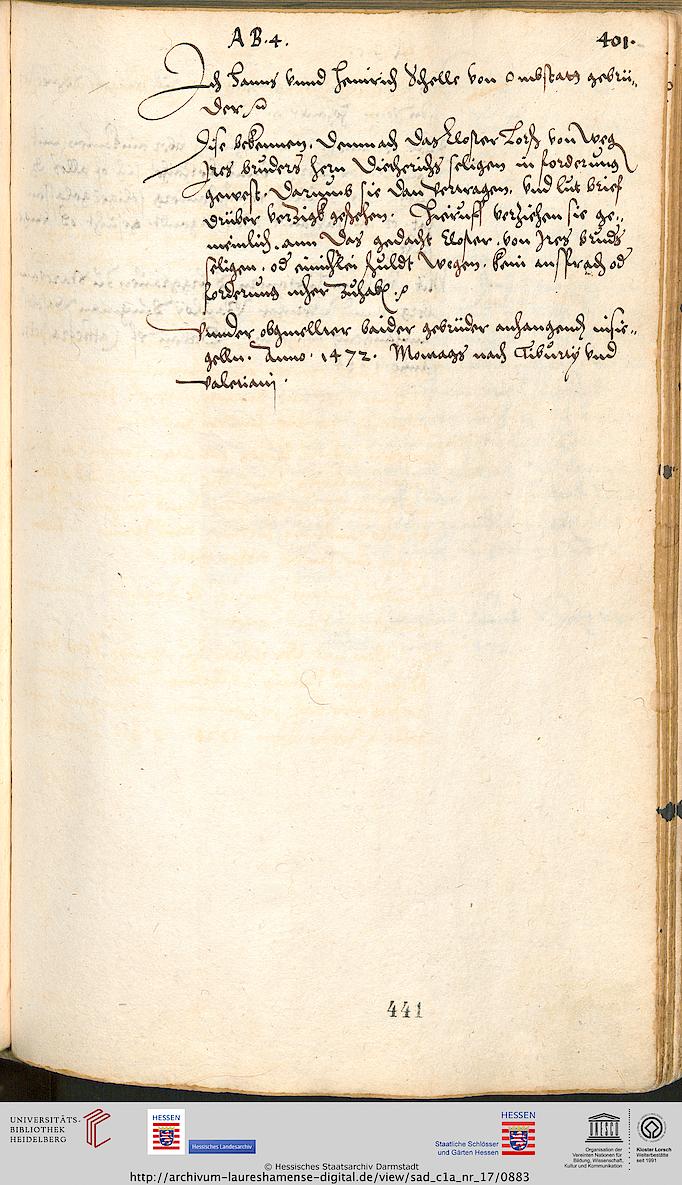 A B. 4. 401.
Ich Hanns vnnd Heinrich Schelle von Ombstatt gebrü„
der
Dise bekennen. Demnach das Closter Lorsch von weg
Ires bruders hern Dietherichs seligen in forderung
gewest. Darumb sie dan vertragen. vnd lut brief
drüber verzigk geschehen. Hieruff verziehen sie ge„
meinlich. ann das gedacht Closter. von Ires bruds
seligen. od einichlei schuldt wegen. kein ansprach od
forderung mher zuhab.
Vnnder obgmellter baider gebrüder anhangend insie„
gelln. Anno. 1472. Montags nach Tiburtij vnd
Valeriani.
441
UNIVERSITÄTS-
BIBLIOTHEK
HEIDELBERG
HESSEN
Hessisches Landesarchiv
HESSEN
Staatliche Schlösser
und Gärten Hessen
Organisation der
Vereinten Nationen für
Bildung, Wissenschaft,
Kultur und Kommunikation
Kloster Lorsch
Welterbestätte
seit 1991
© Hessisches Staatsarchiv Darmstadt
http://archivum-laureshamense-digital.de/view/sad_c1a_nr_17/0883